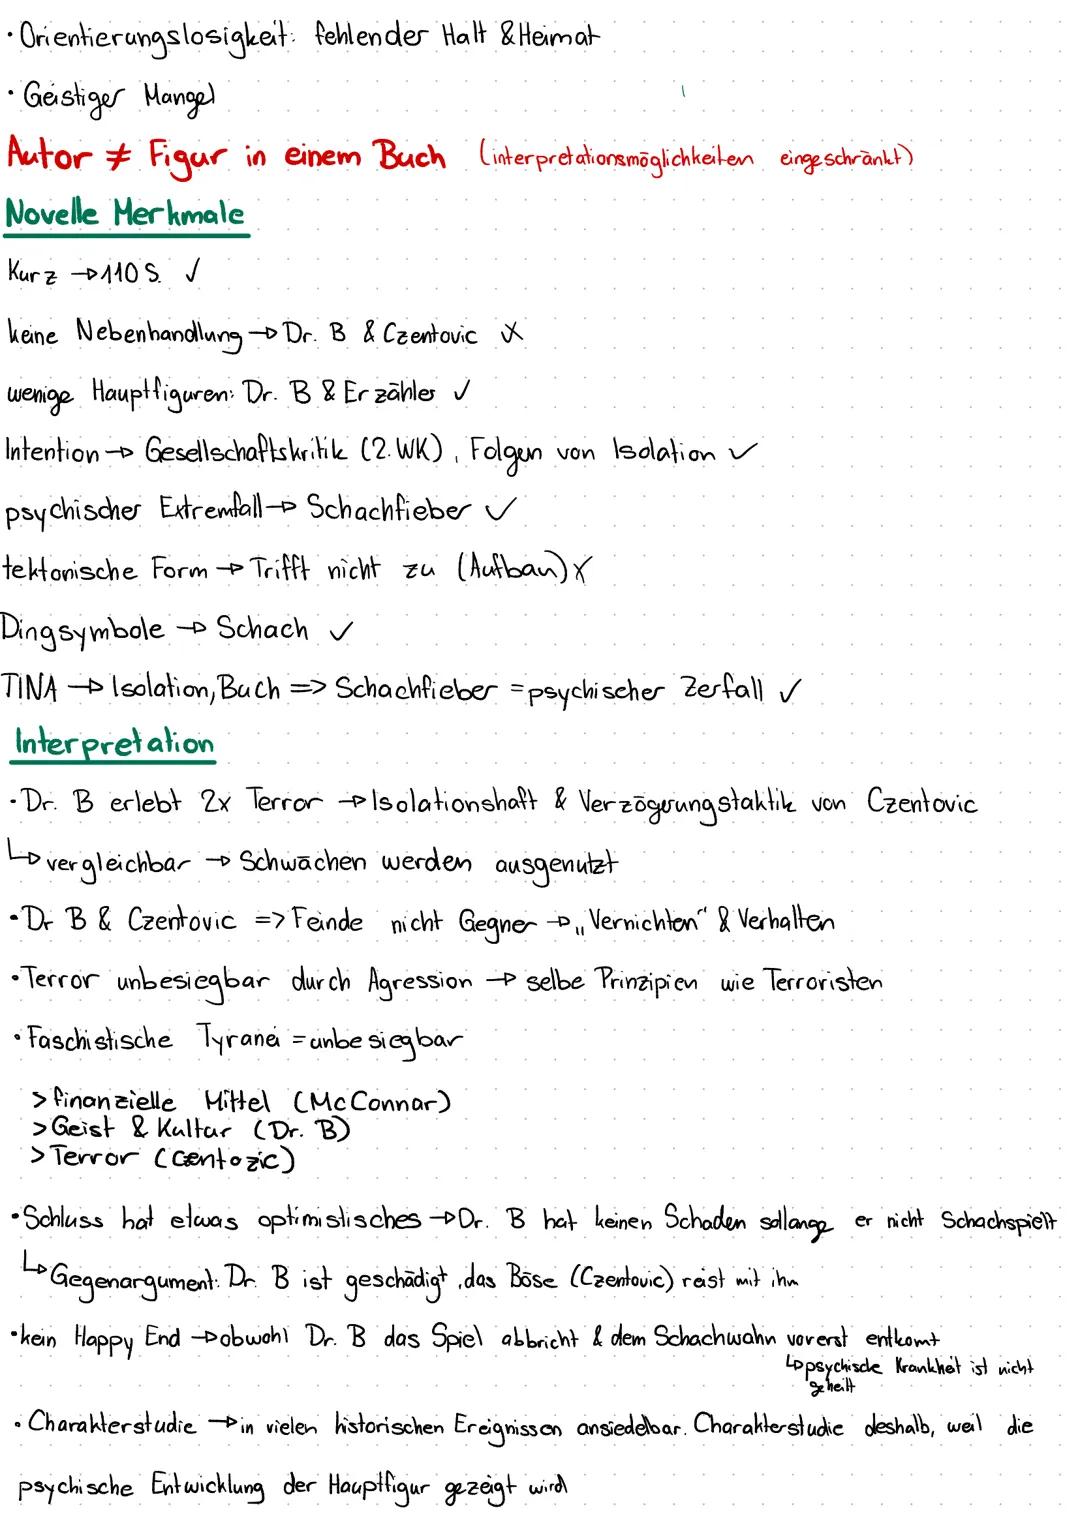 • Orientierungslosigkeit: fehlender Halt & Heimat
• Geistiger Mangel
Autor ≠ Figur in einem Buch (interpretationsmöglichkeiten eingeschränkt)
Novelle Merkmale
Kurz → 110 S. ✓
keine Nebenhandlung → Dr. B & Czentovic ✗
wenige Hauptfiguren: Dr. B & Erzähler ✓
Intention → Gesellschaftskritik (2. WK), Folgen von Isolation ✓
psychischer Extremfall → Schachfieber ✓
tektonische Form → Trifft nicht zu (Aufbau) ✗
Dingsymbole → Schach ✓
TINA → Isolation, Buch => Schachfieber = psychischer Zerfall ✓
Interpretation
• Dr. B erlebt 2x Terror → Isolationshaft & Verzögerungstaktik von Czentovic
↳ vergleichbar → Schwächen werden ausgenutzt
• Dr B & Czentovic => Feinde nicht Gegner → „Vernichten" & Verhalten
• Terror unbesiegbar durch Agression → selbe Prinzipien wie Terroristen
• Faschistische Tyranei = unbesiegbar
> finanzielle Mittel (McConnar)
> Geist & Kultur (Dr. B)
> Terror (Centozic)
• Schluss hat etwas optimistisches → Dr. B hat keinen Schaden sollange er nicht Schachspielt
↳ Gegenargument: Dr. B ist geschädigt, das Böse (Czentovic) reist mit ihm
• kein Happy End → obwohl Dr. B das Spiel abbricht & dem Schachwahn vorerst entkomt
↳ psychische Krankheit ist nicht
geheilt
• Charakterstudie → in vielen historischen Ereignissen ansiedelbar. Charakterstudie deshalb, weil die
psychische Entwicklung der Hauptfigur gezeigt wird